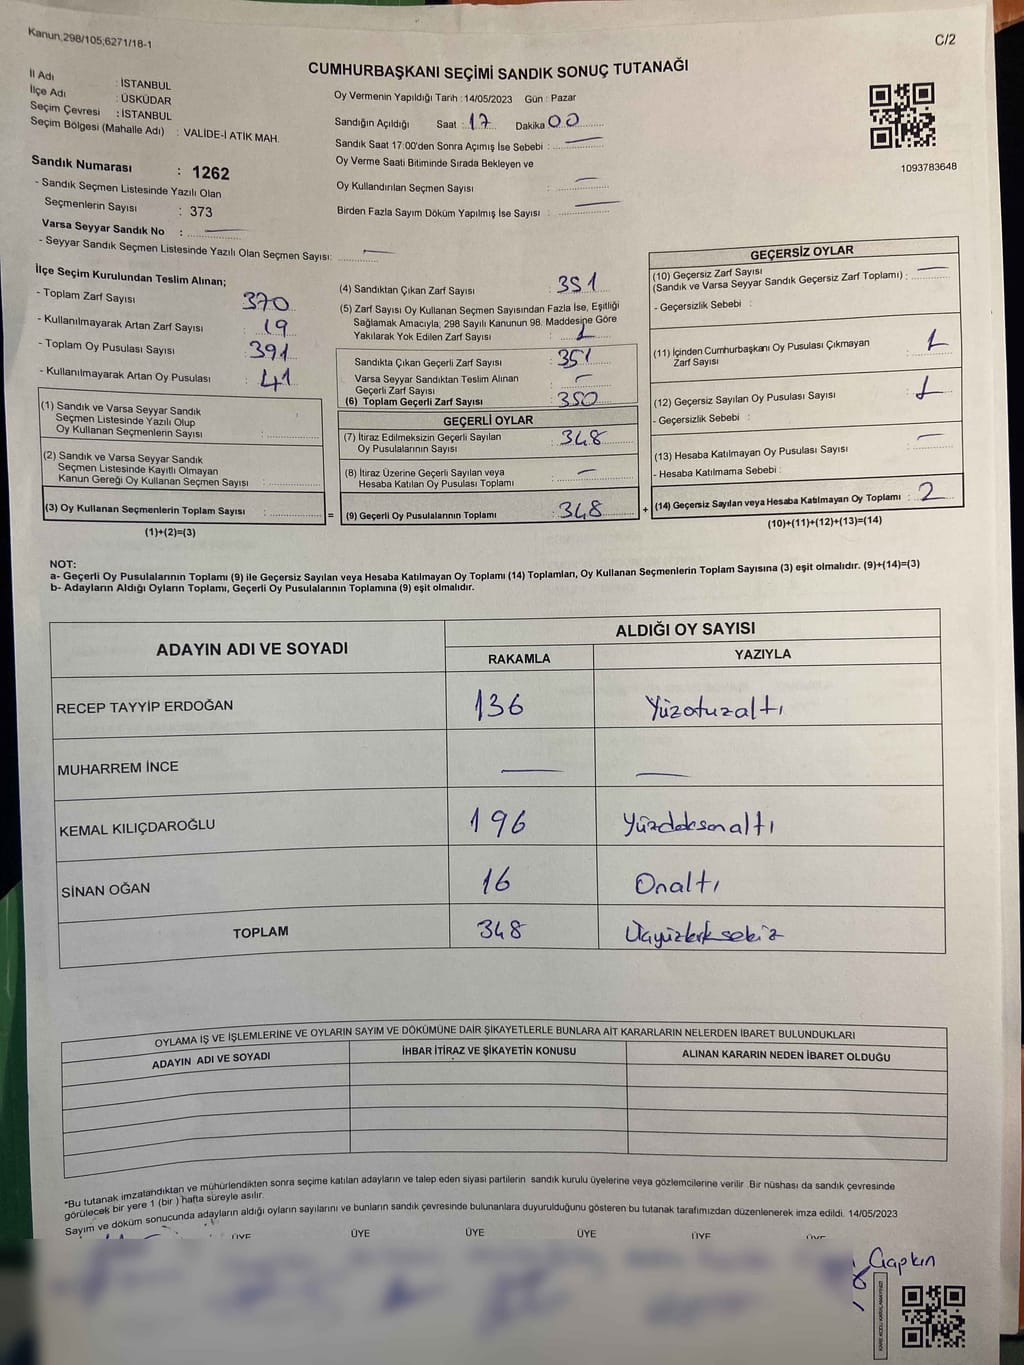 Kanun,298/105,6271/18-1
C/2
CUMHURBAŞKANI SEÇİMİ SANDIK SONUÇ TUTANAĞI
İl Adı : İSTANBUL
İlçe Adı : ÜSKÜDAR
Seçim Çevresi : İSTANBUL
Seçim Bölgesi (Mahalle Adı) : VALİDE-İ ATİK MAH.
Sandık Numarası : 1262
- Sandık Seçmen Listesinde Yazılı Olan
Seçmenlerin Sayısı : 373
Varsa Seyyar Sandık No :
- Seyyar Sandık Seçmen Listesinde Yazılı Olan Seçmen Sayısı:
Oy Vermenin Yapıldığı Tarih : 14/05/2023 Gün : Pazar
Sandığın Açıldığı Saat : 17 Dakika 00
Sandık Saat 17:00'den Sonra Açımış İse Sebebi :
Oy Verme Saati Bitiminde Sırada Bekleyen ve
Oy Kullandırılan Seçmen Sayısı :
Birden Fazla Sayım Döküm Yapılmış İse Sayısı :
1093783648
İlçe Seçim Kurulundan Teslim Alınan;
- Toplam Zarf Sayısı : 370
- Kullanılmayarak Artan Zarf Sayısı : 19
- Toplam Oy Pusulası Sayısı : 391
- Kullanılmayarak Artan Oy Pusulası : 41
(1) Sandık ve Varsa Seyyar Sandık
Seçmen Listesinde Yazılı Olup
Oy Kullanan Seçmenlerin Sayısı :
(2) Sandık ve Varsa Seyyar Sandık
Seçmen Listesinde Kayıtlı Olmayan
Kanun Gereği Oy Kullanan Seçmen Sayısı :
(3) Oy Kullanan Seçmenlerin Toplam Sayısı : =
(1)+(2)=(3)
(4) Sandıktan Çıkan Zarf Sayısı : 351
(5) Zarf Sayısı Oy Kullanan Seçmen Sayısından Fazla İse, Eşitliği
Sağlamak Amacıyla, 298 Sayılı Kanunun 98. Maddesine Göre
Yakılarak Yok Edilen Zarf Sayısı : 1
Sandıkta Çıkan Geçerli Zarf Sayısı : 351
Varsa Seyyar Sandıktan Teslim Alınan
Geçerli Zarf Sayısı :
(6) Toplam Geçerli Zarf Sayısı : 350
GEÇERLİ OYLAR
(7) İtiraz Edilmeksizin Geçerli Sayılan
Oy Pusulalarının Sayısı : 348
(8) İtiraz Üzerine Geçerli Sayılan veya
Hesaba Katılan Oy Pusulası Toplamı :
(9) Geçerli Oy Pusulalarının Toplamı : 348 +
GEÇERSİZ OYLAR
(10) Geçersiz Zarf Sayısı
(Sandık ve Varsa Seyyar Sandık Geçersiz Zarf Toplamı) :
- Geçersizlik Sebebi :
(11) İçinden Cumhurbaşkanı Oy Pusulası Çıkmayan
Zarf Sayısı : 1
(12) Geçersiz Sayılan Oy Pusulası Sayısı : 1
- Geçersizlik Sebebi :
(13) Hesaba Katılmayan Oy Pusulası Sayısı :
- Hesaba Katılmama Sebebi :
(14) Geçersiz Sayılan veya Hesaba Katılmayan Oy Toplamı : 2
(10)+(11)+(12)+(13)=(14)
NOT:
a- Geçerli Oy Pusulalarının Toplamı (9) ile Geçersiz Sayılan veya Hesaba Katılmayan Oy Toplamı (14) Toplamları, Oy Kullanan Seçmenlerin Toplam Sayısına (3) eşit olmalıdır. (9)+(14)=(3)
b- Adayların Aldığı Oyların Toplamı, Geçerli Oy Pusulalarının Toplamına (9) eşit olmalıdır.
ADAYIN ADI VE SOYADI
ALDIĞI OY SAYISI
RAKAMLA YAZIYLA
RECEP TAYYİP ERDOĞAN 136 Yüzotuzaltı
MUHARREM İNCE
KEMAL KILIÇDAROĞLU 196 Yüzdoksanaltı
SİNAN OĞAN 16 Onaltı
TOPLAM 348 Üçyüzkırksekiz
OYLAMA İŞ VE İŞLEMLERİNE VE OYLARIN SAYIM VE DÖKÜMÜNE DAİR ŞİKAYETLERLE BUNLARA AİT KARARLARIN NELERDEN İBARET BULUNDUKLARI
ADAYIN ADI VE SOYADI İHBAR İTİRAZ VE ŞİKAYETİN KONUSU ALINAN KARARIN NEDEN İBARET OLDUĞU
*Bu tutanak imzalandıktan ve mühürlendikten sonra seçime katılan adayların ve talep eden siyasi partilerin sandık kurulu üyelerine veya gözlemcilerine verilir .Bir nüshası da sandık çevresinde
görülecek bir yere 1 (bir ) hafta süreyle asılır.
Sayım ve döküm sonucunda adayların aldığı oyların sayılarını ve bunların sandık çevresinde bulunanlara duyurulduğunu gösteren bu tutanak tarafımızdan düzenlenerek imza edildi. 14/05/2023
ÜYE ÜYE ÜYE ÜYE ÜYE